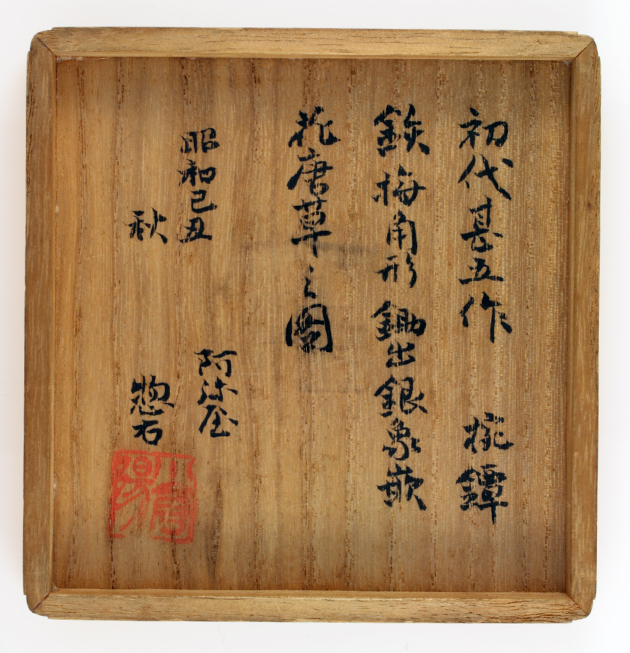 初代甚五作 桄鐔
鉄梅角形鋤出銀象嵌
花唐草之圖
昭和己丑
秋
阿弥屋
惣右